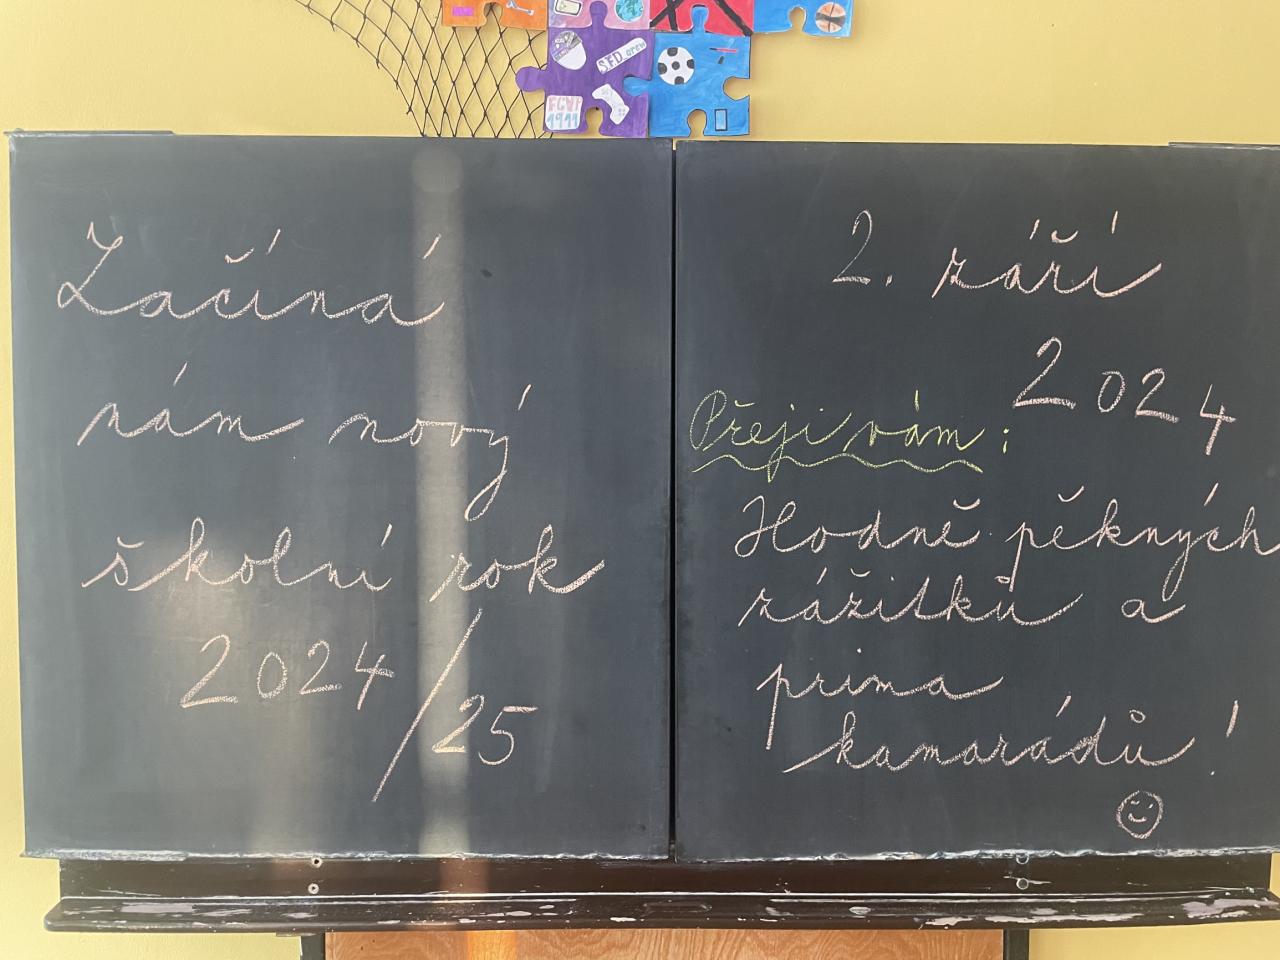 SFD_crew
FCVP
1911
Začíná
nám nový
školní rok
2024/25
2. září
2024
Přeji vám:
Hodně pěkných
zážitků a
prima
kamarádů!